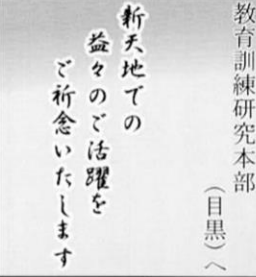 教育訓練研究本部
（目黒）へ
新天地での
益々のご活躍を
ご祈念いたします